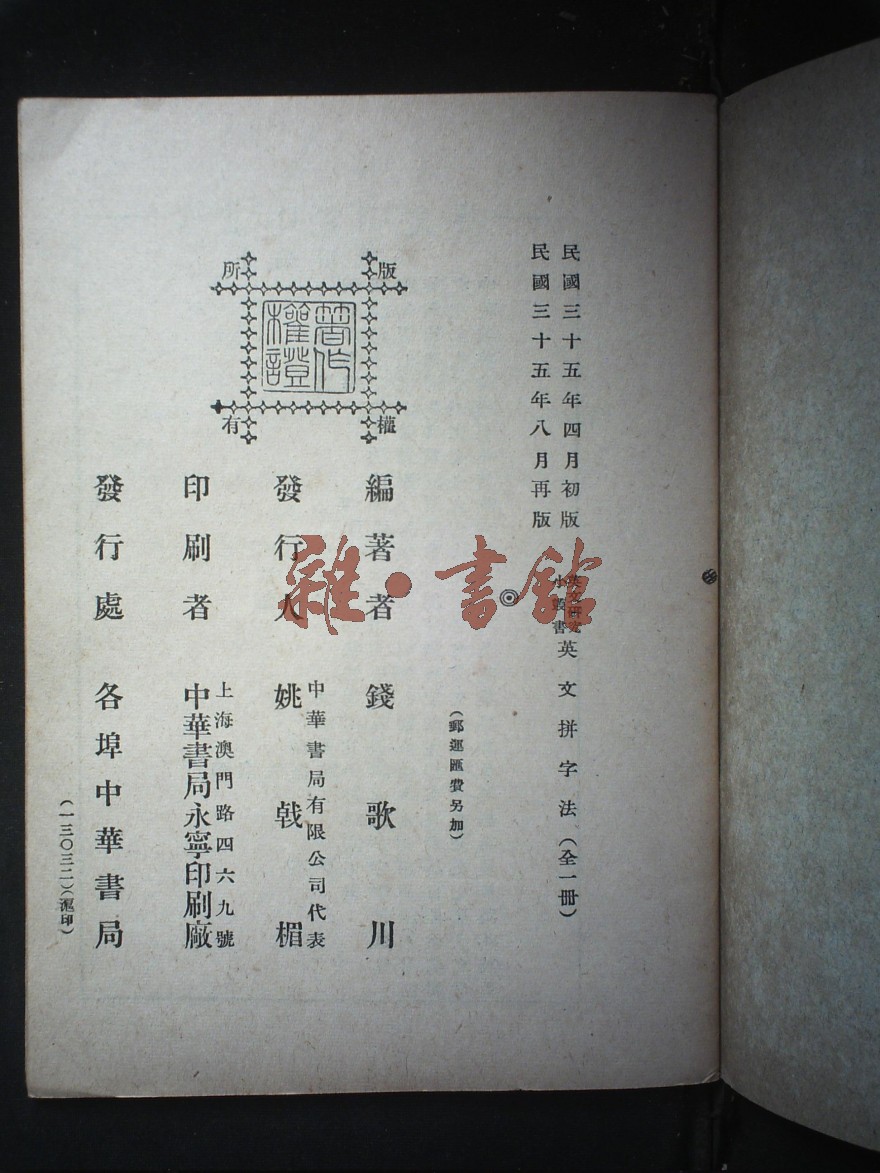 民國三十五年四月初版
民國三十五年八月再版
英文研究小叢書
英文拼字法（全一冊）
（郵運匯費另加）
版權所有
著作權證
編著者 錢歌川
發行人 中華書局有限公司代表 姚戟楣
印刷者 上海澳門路四六九號 中華書局永寧印刷廠
發行處 各埠中華書局
（一三〇三二）（滬印）
雜·書館